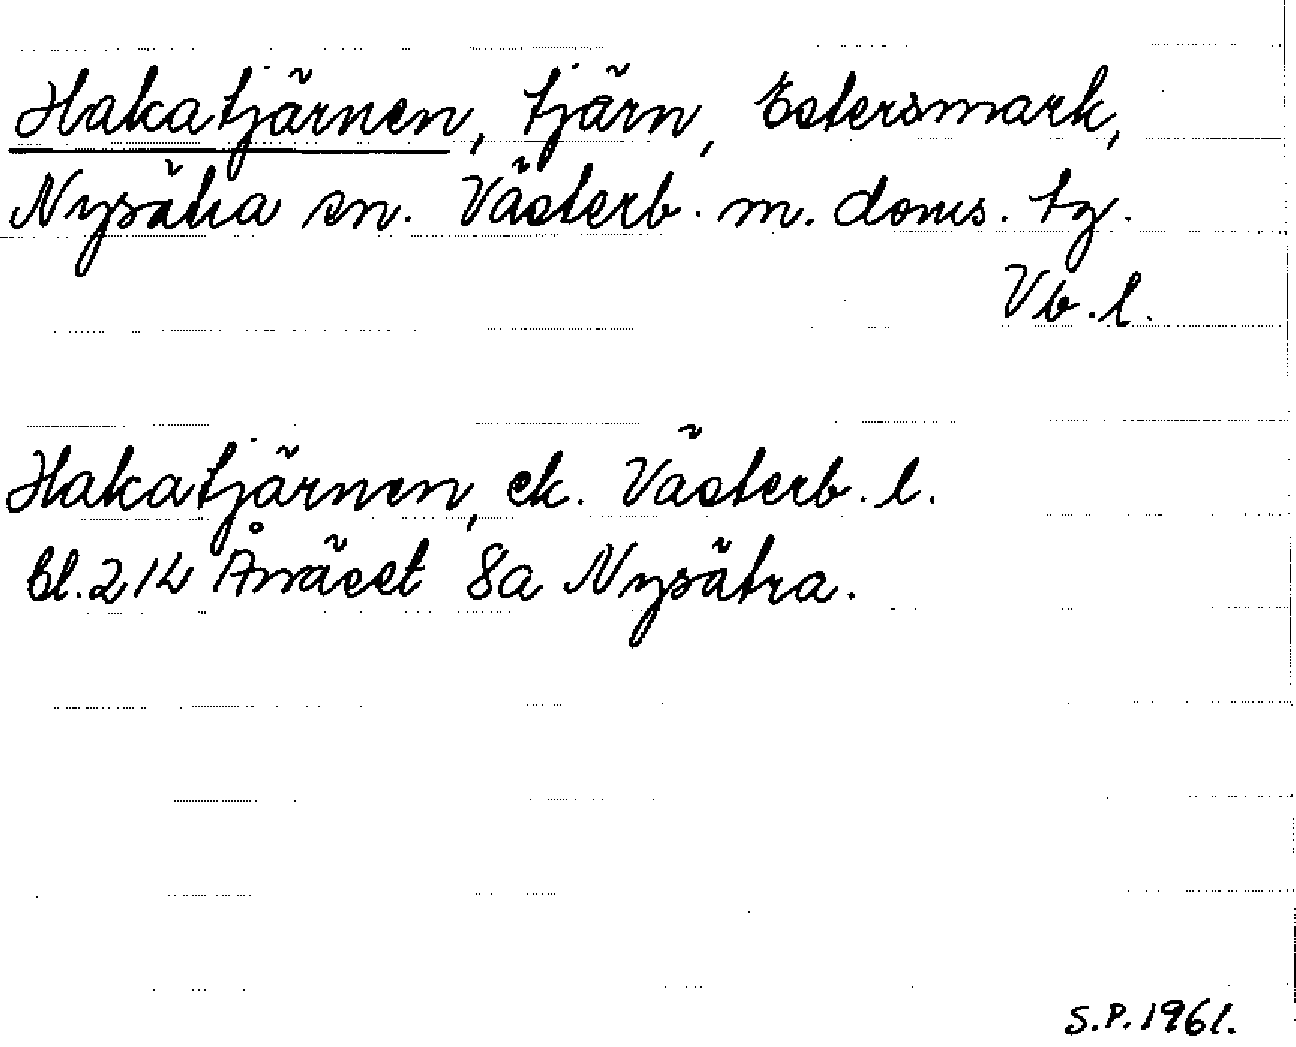 Hakatjärnen, tjärn, Estersmark,
Nysätra sn. Västerb. m. doms. tg.
Vb. l.
Hakatjärnen, ek. Västerb. l.
bl. 214 Ånäset 8a Nysätra.
S.P. 1961.